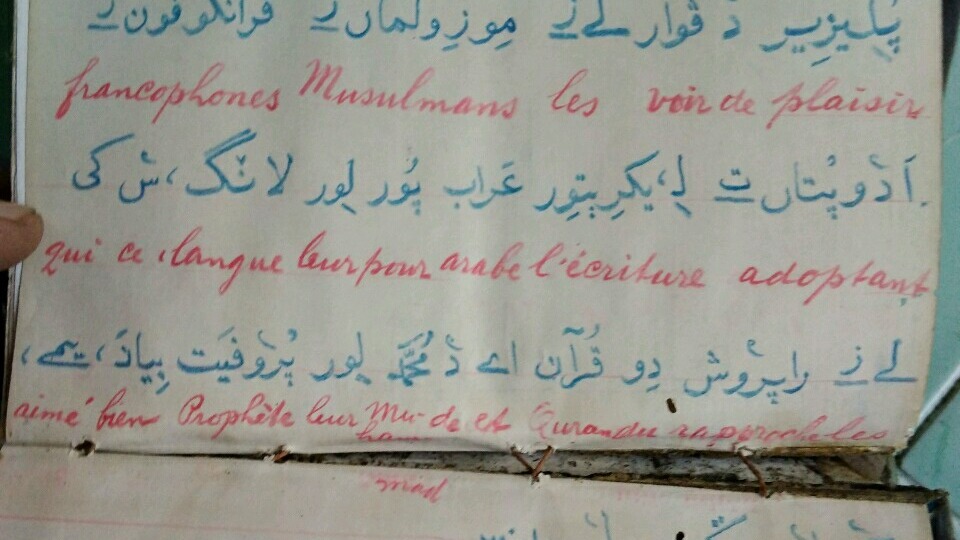 پْلِيزِيرِ دْ ڤوَار لے زْ مِوزِولماں زْ فرانکوفون زْ
francophones Musulmans les voir de plaisir
اَدْوپْتاں ت لِ،یکرِپتِور عَراب پُور لِور لانْگ، سْ کی
qui ce langue leur pour arabe l'écriture adoptant
لے زْ راپرْوش دِو قُرْآن اے دْ مُحَمَّد لِور پْرْوفیَت بِیادَ، یمے،
aimé bien Prophète leur Mu- de et Quran du raproche les
ham
mad